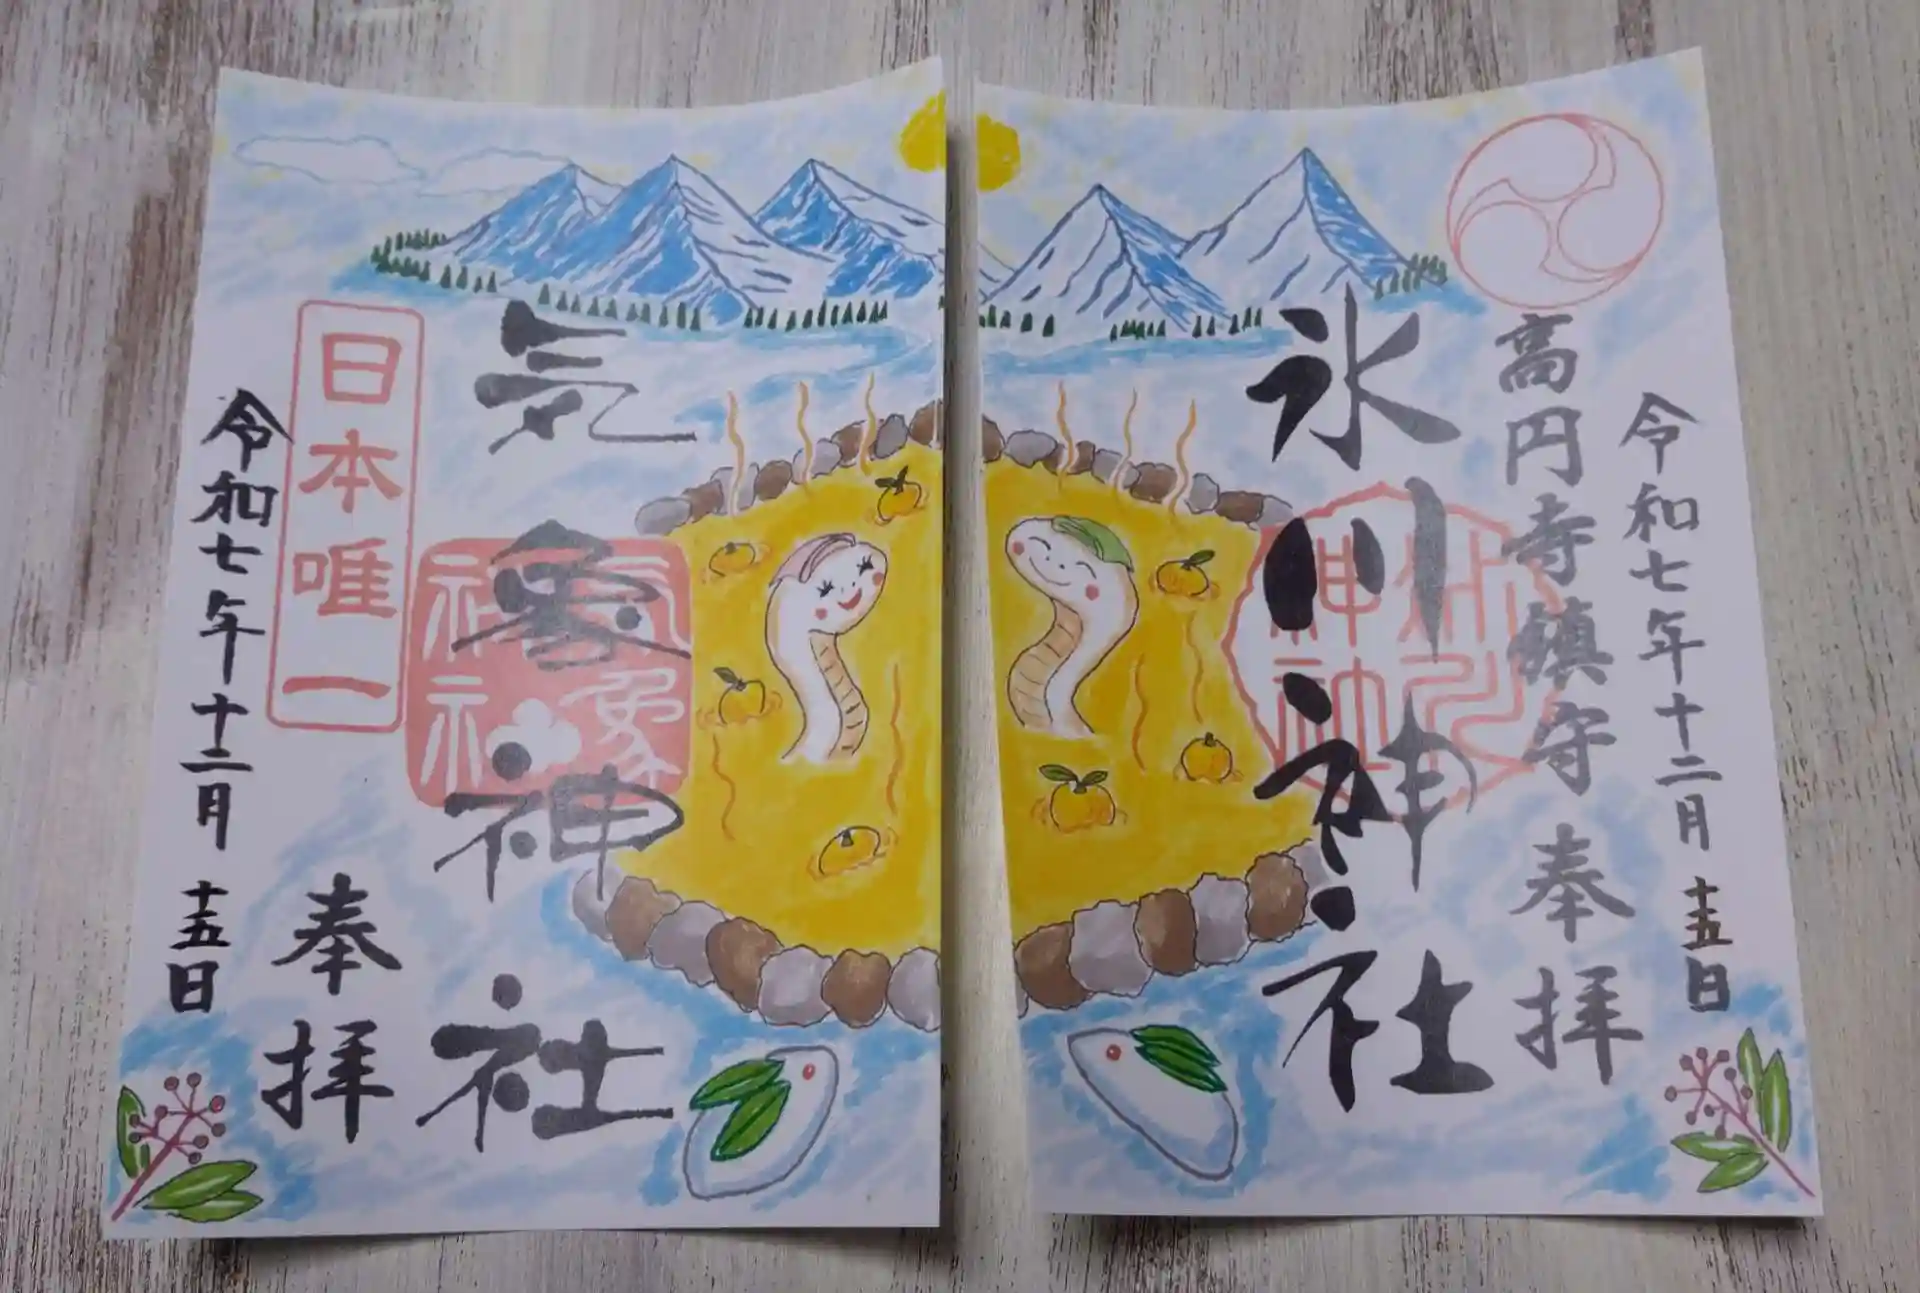 令和七年十二月十五日
高円寺鎮守 奉拝
氷川神社
氷川神社
気象神社
気象神社
日本唯一
奉拝
令和七年十二月十五日